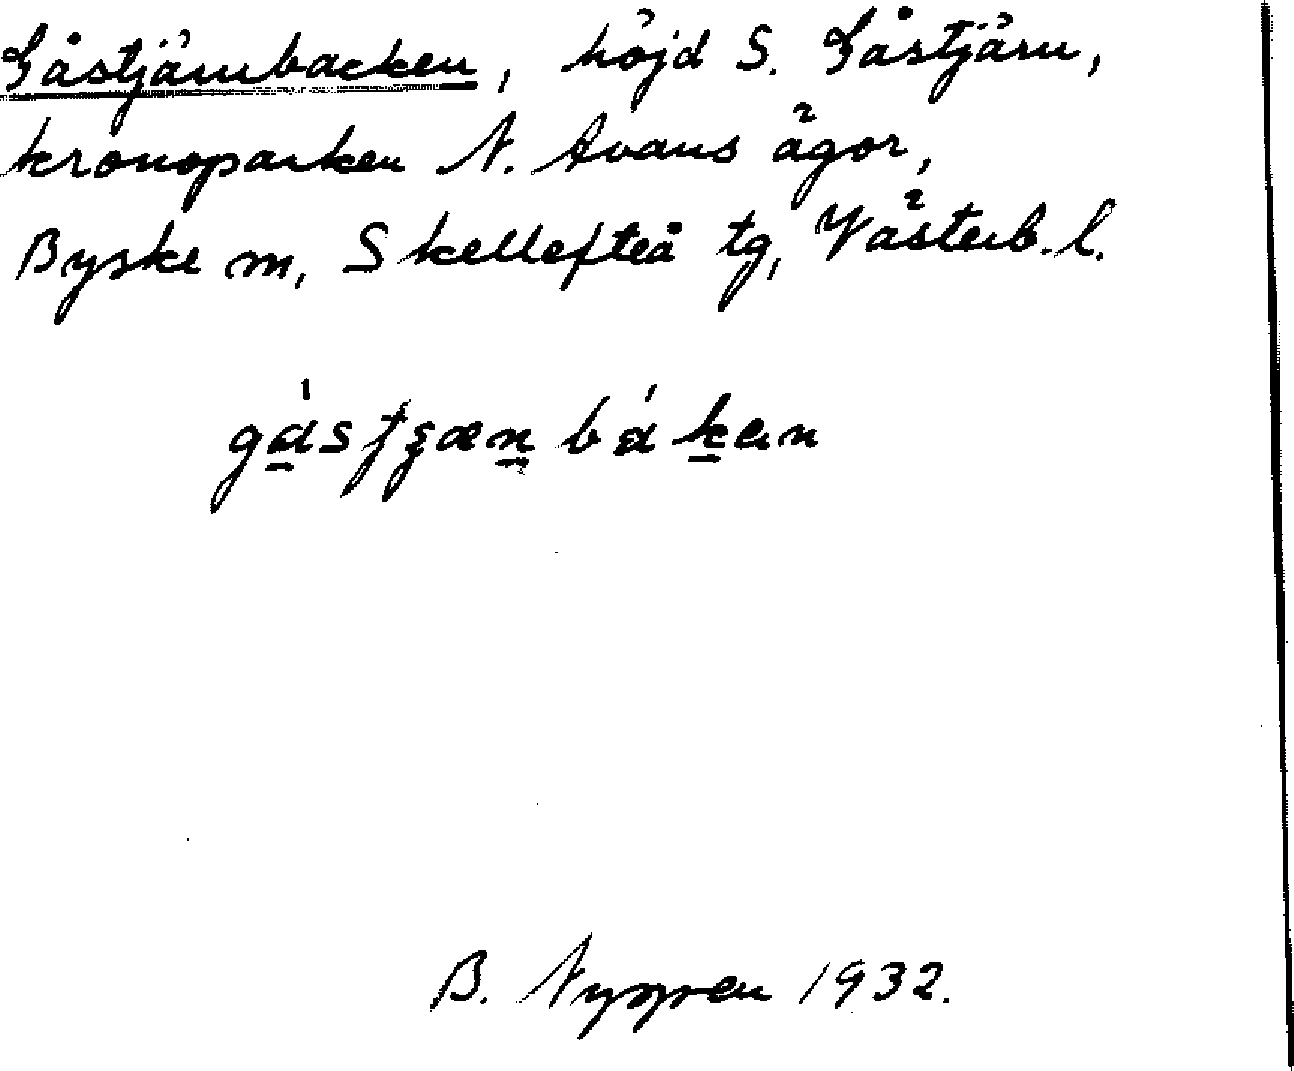 Gåstjärnbacken, höjd S. Gåstjärn,
kronoparken N. Avans ägor,
Byske sn, Skellefteå tg, Västerb. l.
B. Nygren 1932.